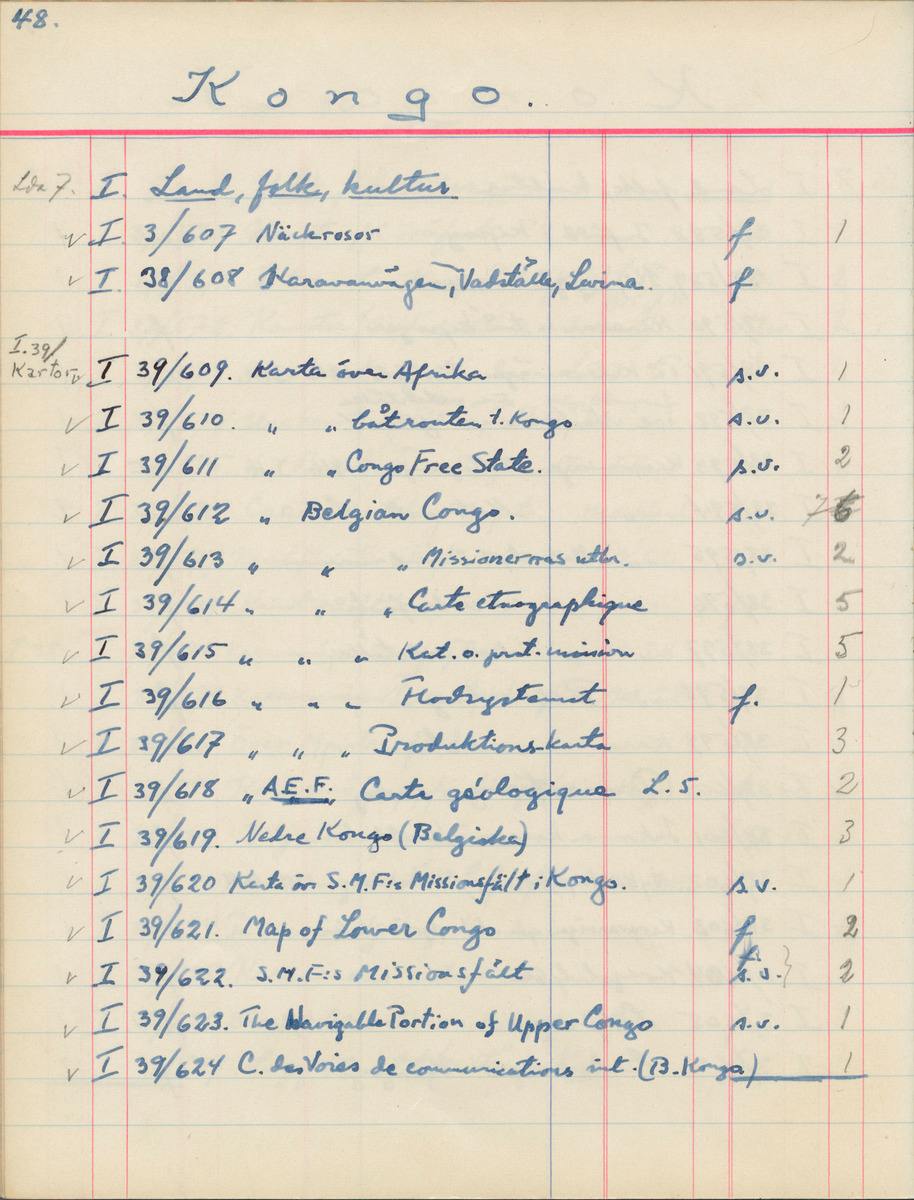 48.
Kongo.
Lda 7. I. Land, folk, kultur
I. 3/607 Näckrosor f 1
I. 38/608 Karavanvägen, Vadställe, Lwina. f
I. 39/
Kartor
I 39/609. Karta över Afrika s.v. 1
I 39/610. " " båtrouten t. Kongo s.v. 1
I 39/611 " " Congo Free State. s.v. 2
I 39/612 " Belgian Congo. s.v. 7 6
I 39/613 " " " Missionernas utbr. s.v. 2
I 39/614 " " " Carte etnographique 5
I 39/615 " " " Kat. o. prot. mission 5
I 39/616 " " " Flodsystemet f. 1
I 39/617 " " " Produktions-karta 3
I 39/618 " A.E.F. Carte géologique L. 5. 2
I 39/619. Nedre Kongo (Belgiska) 3
I 39/620 Karta öv. S.M.F:s Missionsfält i Kongo. s.v. 1
I 39/621. Map of Lower Congo f 2
I 39/622. S.M.F:s Missionsfält s.v. } 2
I 39/623. The Navigable Portion of Upper Congo s.v. 1
I 39/624 C. des Voies de communications int. (B. Kongo) 1